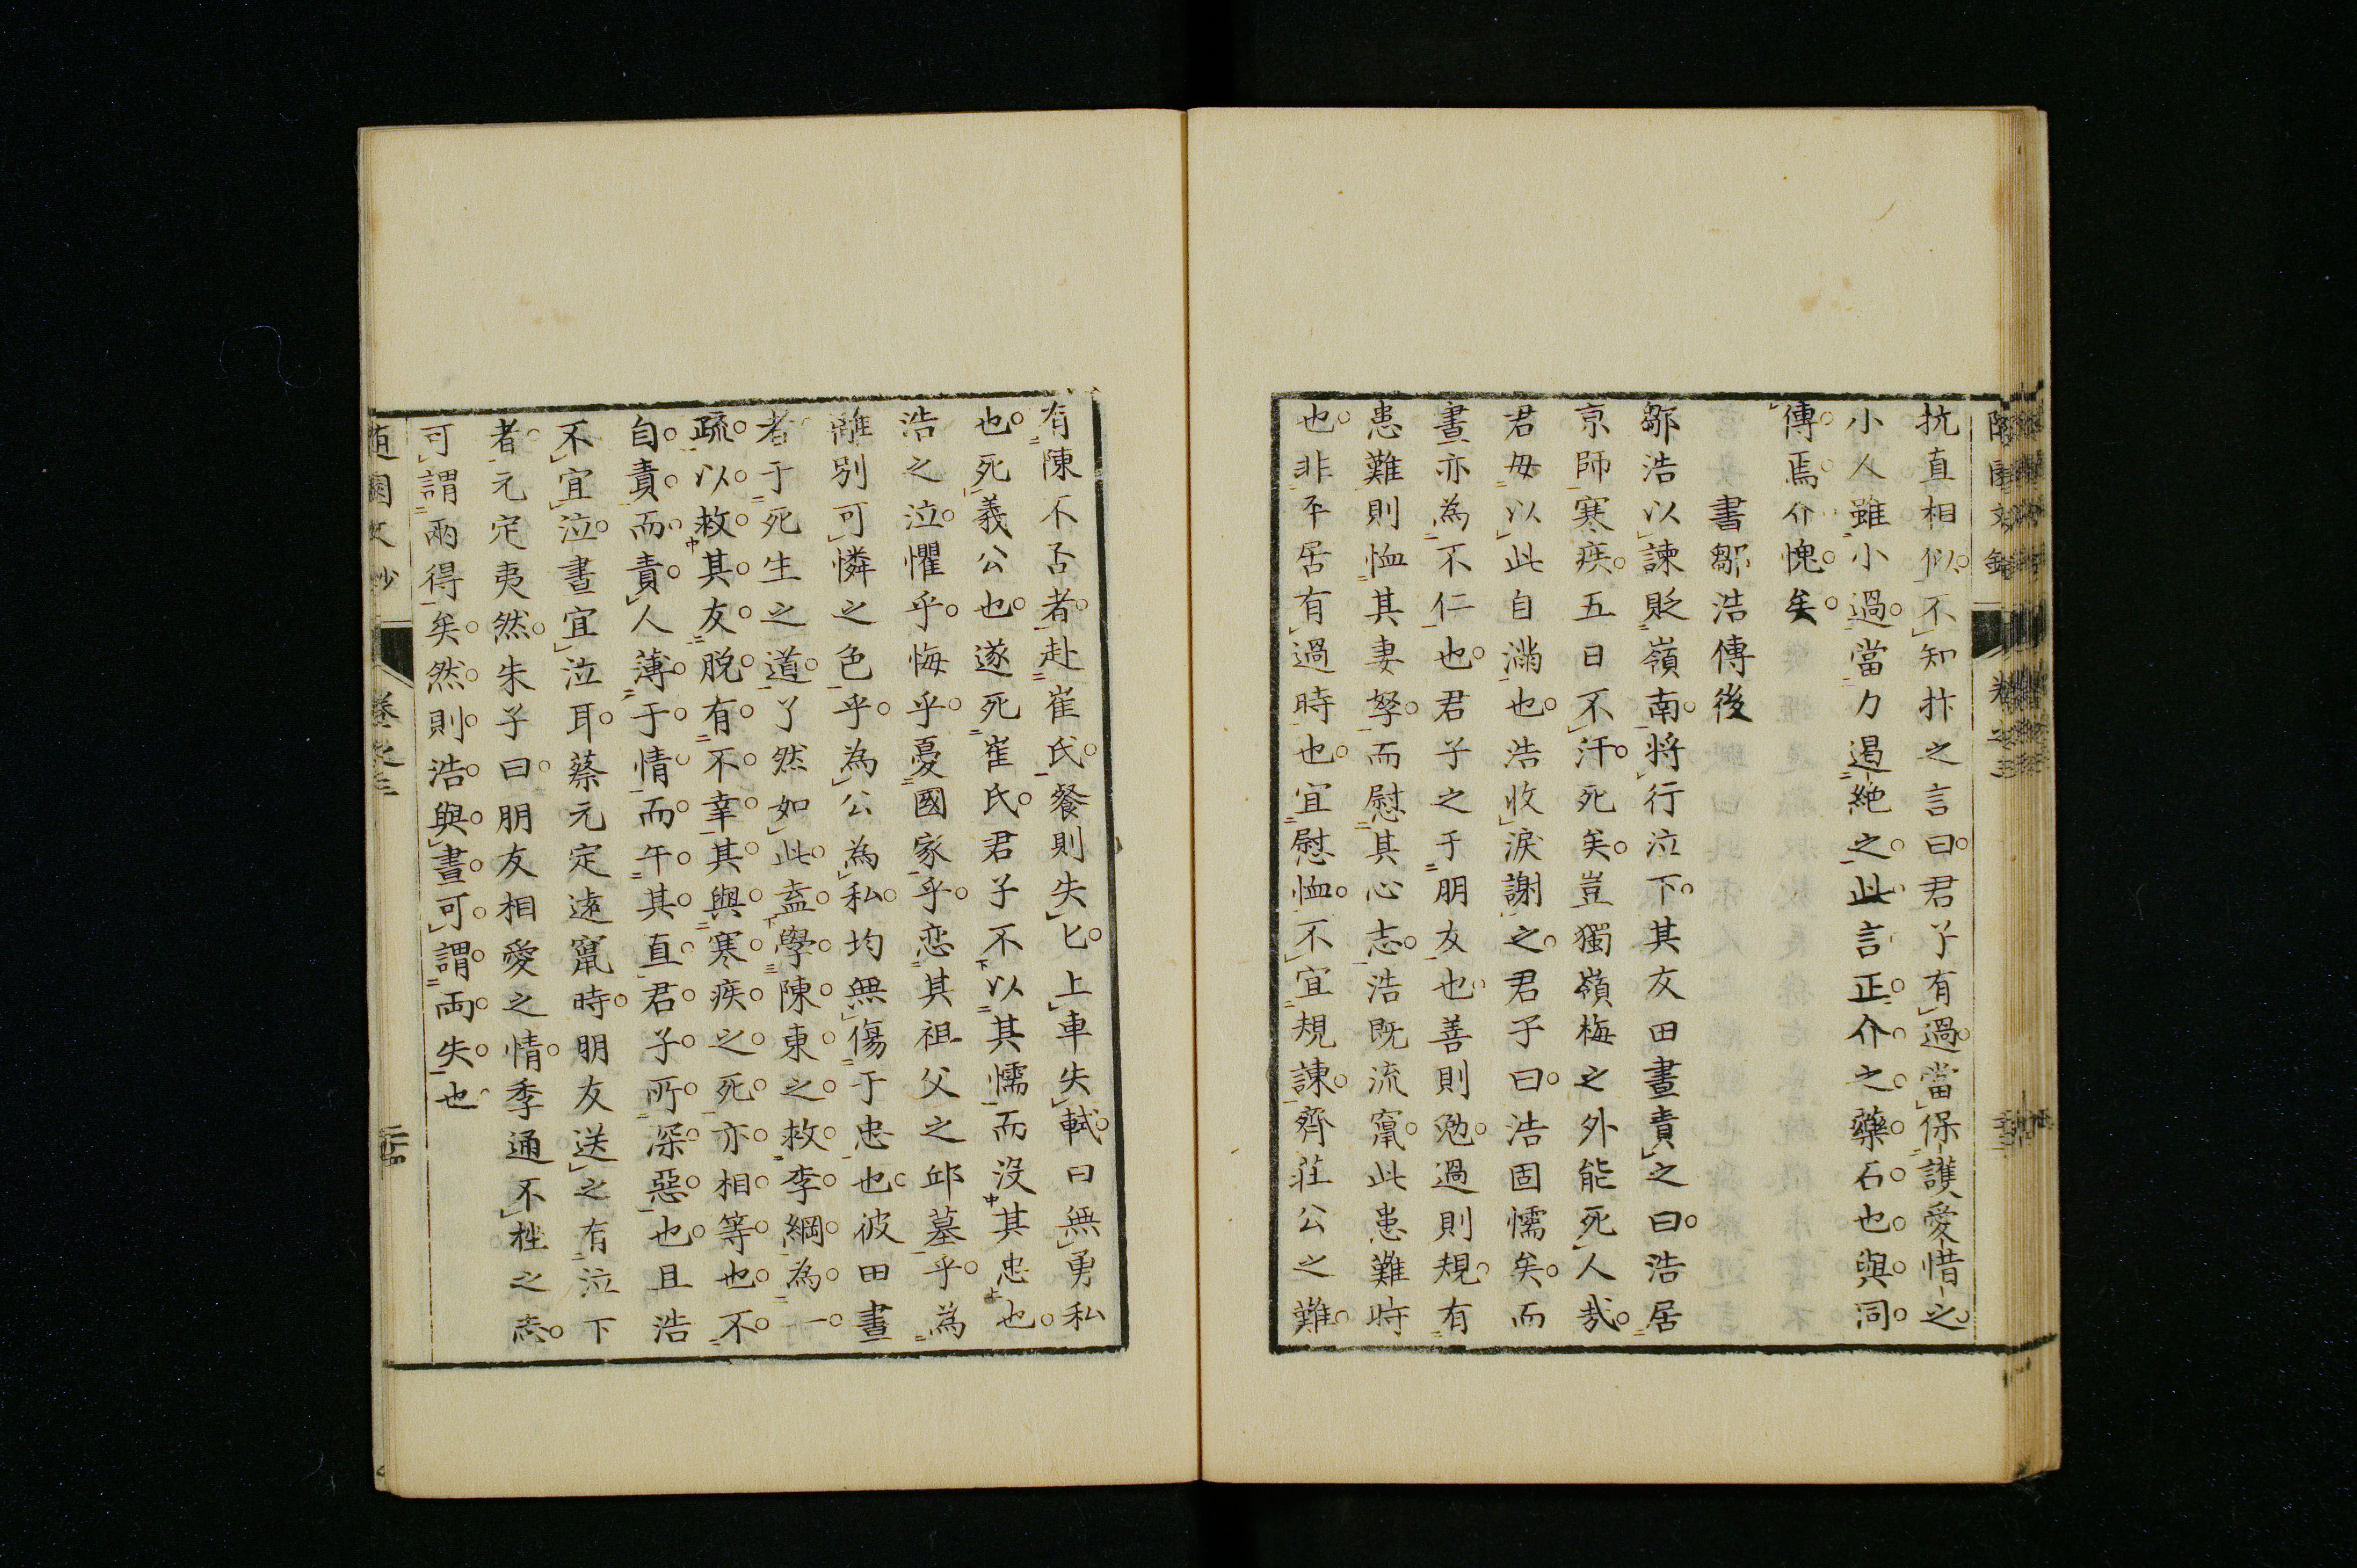 抗直相似不知抃之言曰君子有過當保護愛惜之
小人雖小過當力遏絶之此言正介之藥石也與同
傳焉介愧矣
書鄒浩傳後
鄒浩以諫貶嶺南將行泣下其友田晝責之曰浩居
京師寒疾五日不汗死矣豈獨嶺梅之外能死人哉
君毋以此自滿也浩收淚謝之君子曰浩固懦矣而
晝亦為不仁也君子之于朋友也善則勉過則規有
患難則恤其妻孥而慰其心志浩既流竄此患難時
也非平居有過時也宜慰恤不宜規諫齊莊公之難
有陳不占者赴崔氏餐則失匕上車失軾曰無勇私
也死義公也遂死崔氏君子不以其懦而沒其忠也
浩之泣懼乎悔乎憂國家乎恋其祖父之邱墓乎為
離別可憐之色乎為公為私均無傷于忠也彼田晝
者于死生之道了然如此盍學陳東之救李綱為一
疏以救其友脫有不幸其與寒疾之死亦相等也不
自責而責人薄于情而午其直君子所深惡也且浩
不宜泣晝宜泣耳蔡元定遠竄時朋友送之有泣下
者元定夷然朱子曰朋友相愛之情季通不挫之志
可謂兩得矣然則浩與晝可謂両失也
隨園文鈔
卷之三